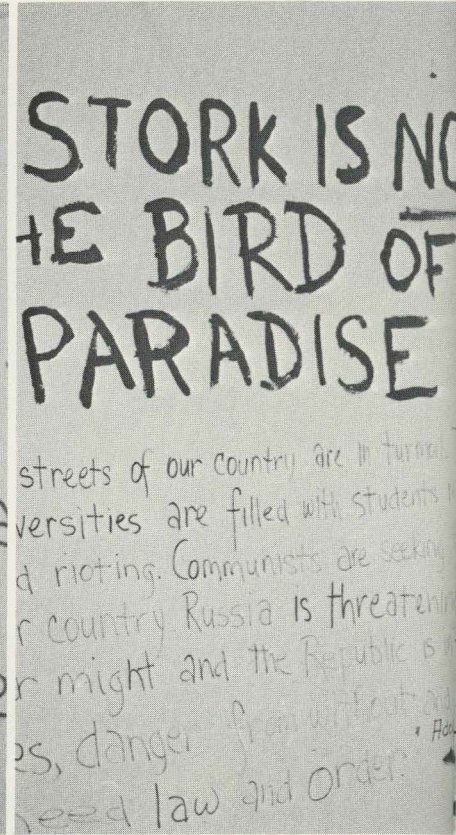 STORK IS NO
HE BIRD OF
PARADISE
streets of our country are in turmoil.
versities are filled with students
d rioting. Communists are seeking
r country Russia is threatenin
r might and the Republic is
es, danger from without and
need law and order.